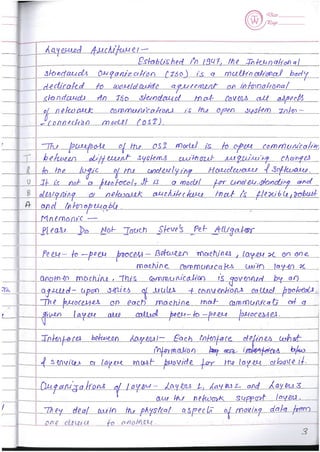 Layered Architecture:-
Established in 1947, the International
Standards Organization (ISO) is a multinational body
dedicated to worldwide agreement on international
standards. An ISO standard that covers all aspects
of network communications is the open system Inter-
-connection model (OSI).
The purpose of the OSI model is to open communication
between different systems without requiring changes
to the logic of the underlying Hardware & Software.
It is not a protocol, It is a model for understanding and
designing a network architecture that is flexible, robust
and interoperable.
Mnemonic -
Please Do Not Touch Steve's Pet Alligator
Peer-to-peer process - Between machines, layer x on one
machine communicates with layer x
another machine. This communication is governed by an
agreed-upon series of rules & conventions called protocols.
The processes on each machine that communicate at a
given layer are called peer-to-peer processes.
Interfaces between layers:- Each interface defines what
information
& services a layer must provide for the layer above it.
Organizations of layers - Layers 1, Layers 2 and Layers 3
are the network support layers.
They deal with the physical aspects of moving data from
one device to another.
3